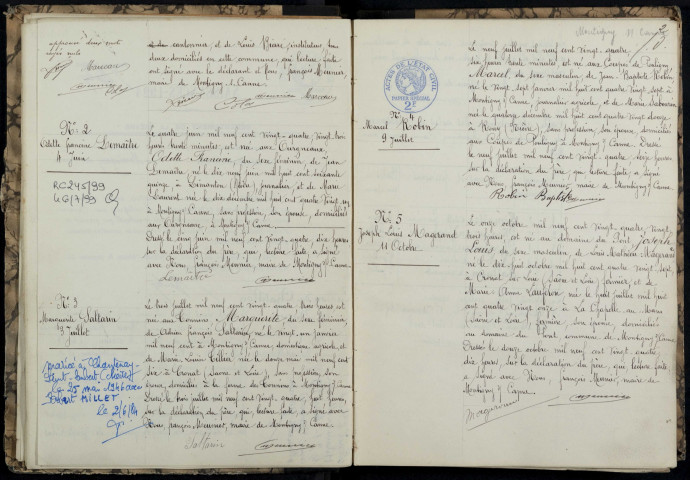 approuvé deux mots
rayés nuls
Marceau
cordonnier, et de Louis Biais, instituteur, tous
deux domiciliés en cette commune, qui lecture faite
ont signé avec le déclarant et Nous, françois Meunier,
maire de Montigny s/ Canne.
Marceau
N° 2
Odette Francine Lemaître
4 Juin
RC 245/99
46/7/99
Le quatre juin mil neuf cent vingt-quatre, trois
heures trente minutes, est née aux
Odette Francine, du sexe féminin, de Jean
Lemaître né le dix juin mil huit cent soixante
quinze, à Limanton (Nièvre), journalier, et de Marie
Laurent née le dix décembre mil huit cent quatre vingt
à Montigny s/ Canne, sans profession, son épouse, domiciliés
à Montigny s/ Canne.
Dressé le cinq juin mil neuf cent vingt-quatre, dix heures
sur la déclaration du père, qui, lecture faite, a signé
avec Nous, françois Meunier, maire de Montigny s/ Canne.
Lemaître
N° 3
Marguerite Saltarin
3 Juillet
mariée à Chantenay
Saint-Imbert (Nièvre)
le 25 mai 1946 avec
Robert MILLET
le 2/6/
Le trois juillet mil neuf cent vingt-quatre, trois heures est
née aux Marguerite du sexe féminin
de Adrien François Saltarin, né le vingt-un janvier
mil neuf cent à Montigny s/ Canne, domestique agricole, et
de Marie Louise née le douze mai mil neuf cent
dix à Cronat (Saône et Loire), sans profession, son
épouse, domiciliés à la ferme de à Montigny s/ Canne
Dressé le trois juillet mil neuf cent vingt-quatre, huit heures,
sur la déclaration du père, qui, lecture faite, a signé avec
Nous, françois Meunier, maire de Montigny s/ Canne.
Saltarin
Montigny s/ Canne
ACTES DE L'ÉTAT CIVIL
PAPIER SPÉCIAL
2F
N° 4
Marcel Robin
9 Juillet
Le neuf juillet mil neuf cent vingt-quatre
heures trente minutes est né aux Coupes de
Marcel, du sexe masculin, de Jean Baptiste Robin,
né le vingt janvier mil huit cent quatre vingt sept à
Montigny s/ Canne, journalier agricole, et de Marie
née le quatorze décembre mil huit cent quatre vingt douze
à (Nièvre), sans profession, son épouse, domiciliés
aux Coupes de à Montigny s/ Canne. Dressé
le neuf juillet mil neuf cent vingt-quatre, heures
sur la déclaration du père, qui lecture faite a signé
avec Nous, françois Meunier, maire de Montigny s/ Canne.
Robin Baptiste
N° 5
Joseph Louis Magerand
11 Octobre
Le onze octobre mil neuf cent vingt-quatre,
trois heures, est né au domaine du Pont, Joseph
Louis, du sexe masculin, de Louis Mathieu Magerand
né le dix sept octobre mil huit cent quatre vingt sept
à Cronat sur Loire (Saône et Loire), fermier, et de
Marie Anne née le huit mil huit
cent quatre vingt onze à La Chapelle au Mans
(Saône et Loire), fermière, son épouse, domiciliés
au domaine du Pont, commune de Montigny s/ Canne
Dressé le douze octobre mil neuf cent vingt-quatre
dix heures sur la déclaration du père, qui, lecture faite,
a signé avec Nous, françois Meunier, maire de
Montigny s/ Canne
Magerand